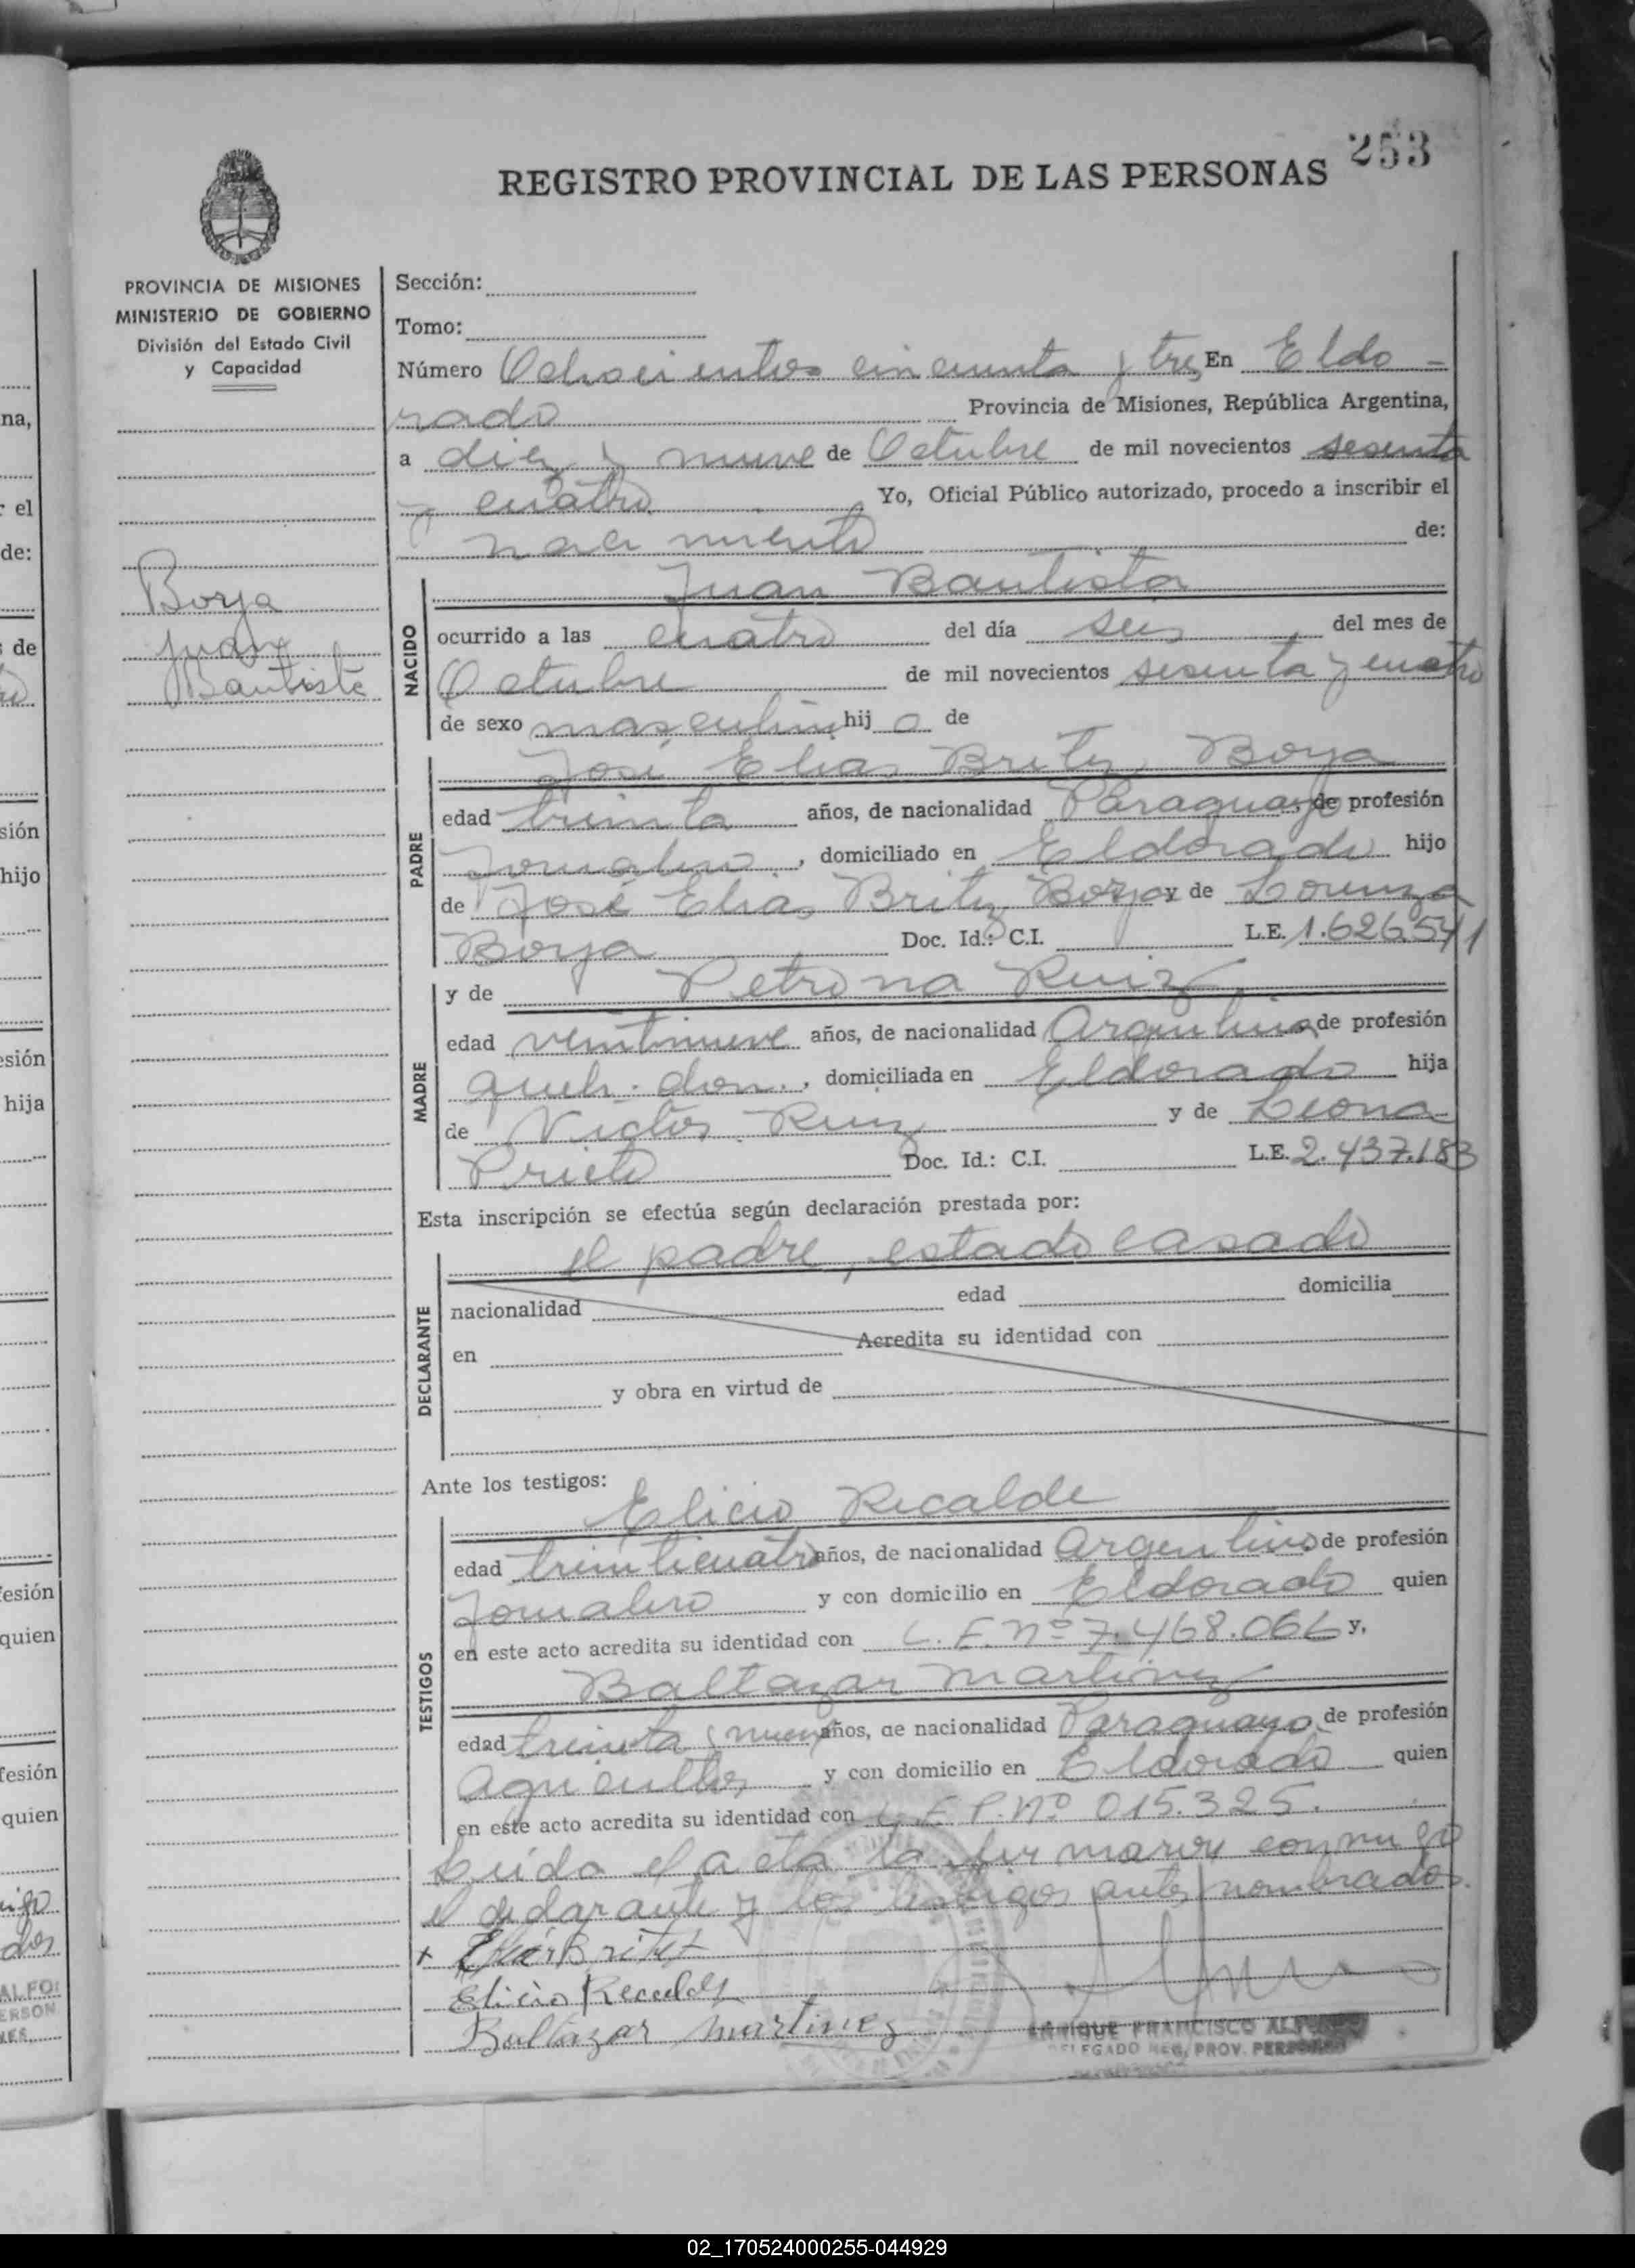 253
REGISTRO PROVINCIAL DE LAS PERSONAS
PROVINCIA DE MISIONES
MINISTERIO DE GOBIERNO
División del Estado Civil
y Capacidad
Borja
Juan
Bautista
Sección:
Tomo:
Número Ochocientos cincuenta y tres En Eldo-
rado Provincia de Misiones, República Argentina,
a diez y nueve de Octubre de mil novecientos sesenta
y cuatro Yo, Oficial Público autorizado, procedo a inscribir el
nacimiento de:
NACIDO
Juan Bautista
ocurrido a las cuatro del día seis del mes de
Octubre de mil novecientos sesenta y cuatro
de sexo masculino hijo de
PADRE
José Elias Britez Borja
edad treinta años, de nacionalidad Paraguayo de profesión
Jornalero, domiciliado en Eldorado hijo
de José Elias Britez Borja y de Lorenza
Borja Doc. Id.: C.I. L.E. 1.626.541
MADRE
y de Petrona Ruiz
edad veintinueve años, de nacionalidad Argentina de profesión
queh. dom., domiciliada en Eldorado hija
de Victor Ruiz y de Leona
Prieto Doc. Id.: C.I. L.E. 2.437.183
Esta inscripción se efectúa según declaración prestada por:
DECLARANTE
el padre, estado casado
nacionalidad edad domicilia
en Acredita su identidad con
y obra en virtud de
Ante los testigos:
TESTIGOS
Elicio Recalde
edad treinticuatro años, de nacionalidad Argentino de profesión
Jornalero y con domicilio en Eldorado quien
en este acto acredita su identidad con L.E. Nº 7.468.066 y,
Baltazar Martinez
edad treinta y nueve años, de nacionalidad Paraguayo de profesión
Agricultor y con domicilio en Eldorado quien
en este acto acredita su identidad con P. Nº 015.325.
Leida el acta la firmaron conmigo
el declarante y los testigos antes nombrados.
Elias Britez
Elicio Recalde
Baltazar Martinez
ENRIQUE FRANCISCO
DELEGADO REG. PROV. PERSONAS
na,
r el
de:
de
sión
hijo
esión
hija
fesión
quien
fesión
quien
02_170524000255-044929